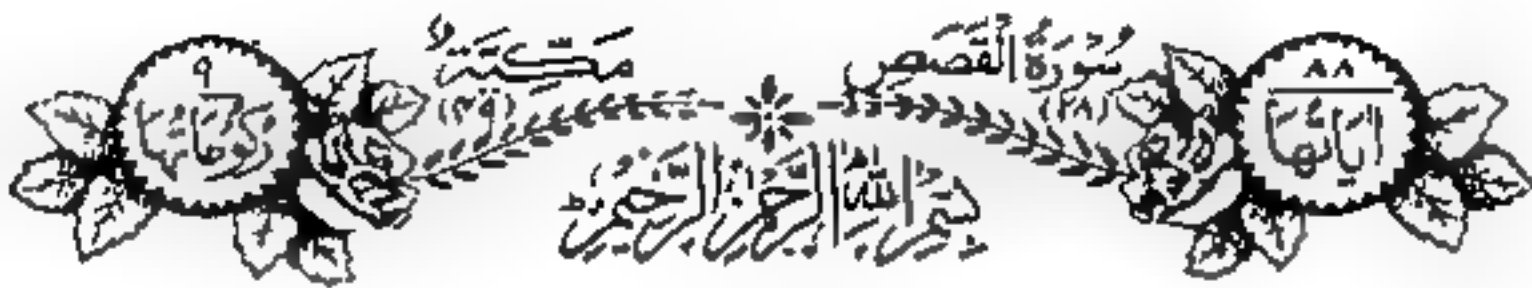 ٨٨ اٰيَاتُهَا سُوْرَةُ الْقَصَصِ مَكِّيَّةٌ ٩ رُكُوْعَاتُهَا
(٢٨) (٤٩)
بِسْمِ اللّٰهِ الرَّحْمٰنِ الرَّحِيْمِ